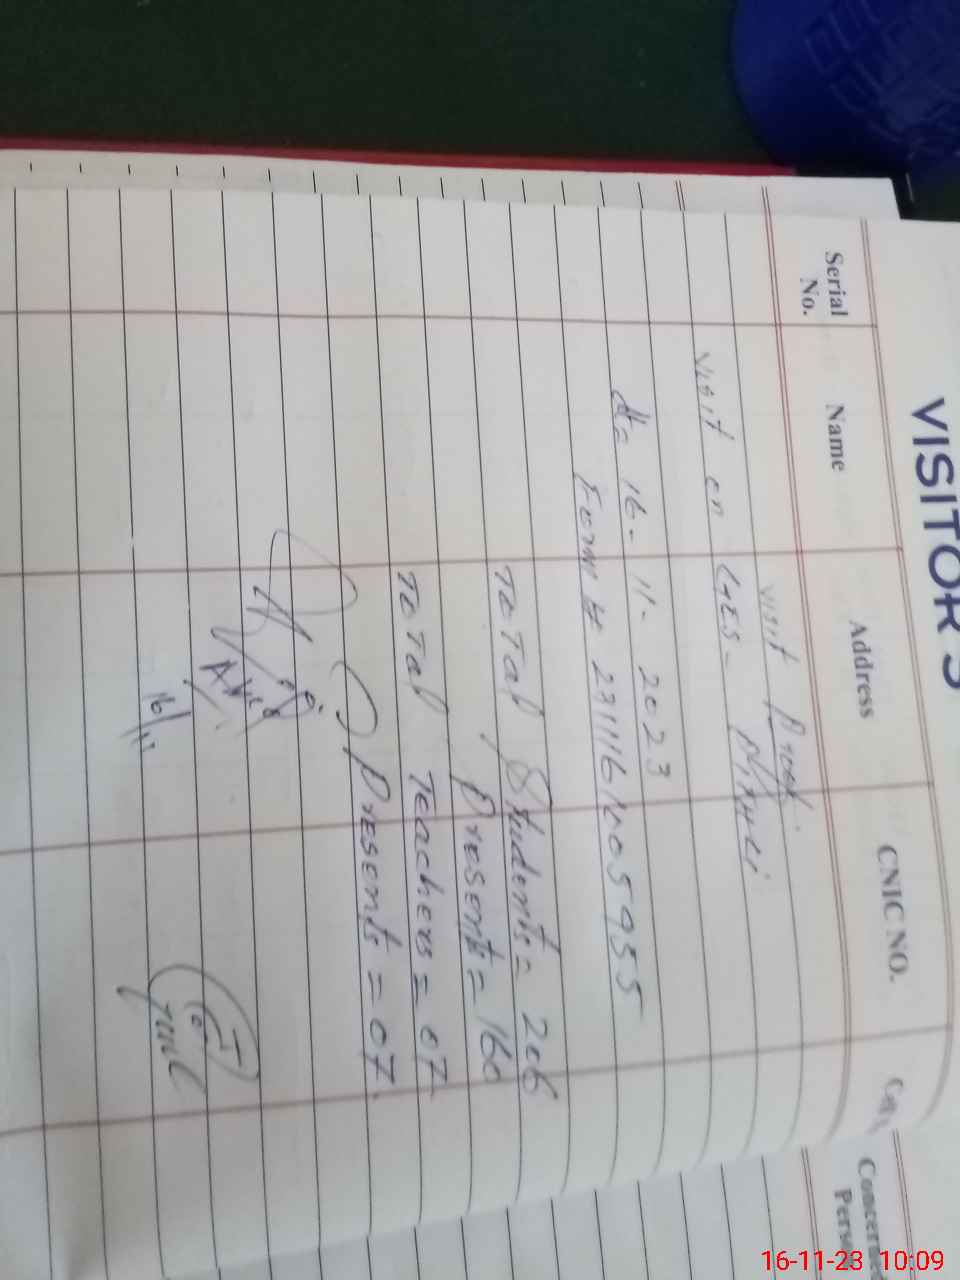 VISITOR'S
Serial No. Name Address CNIC NO. Cell #, Concerned Person
visit Proof.
visit on GGES-
dt= 16-11-2023
Form # 2311161005955
TOTal Students= 206
Presents= 160
TOTal Teachers= 07
Presents= 07.
16/11
16-11-23 10:09